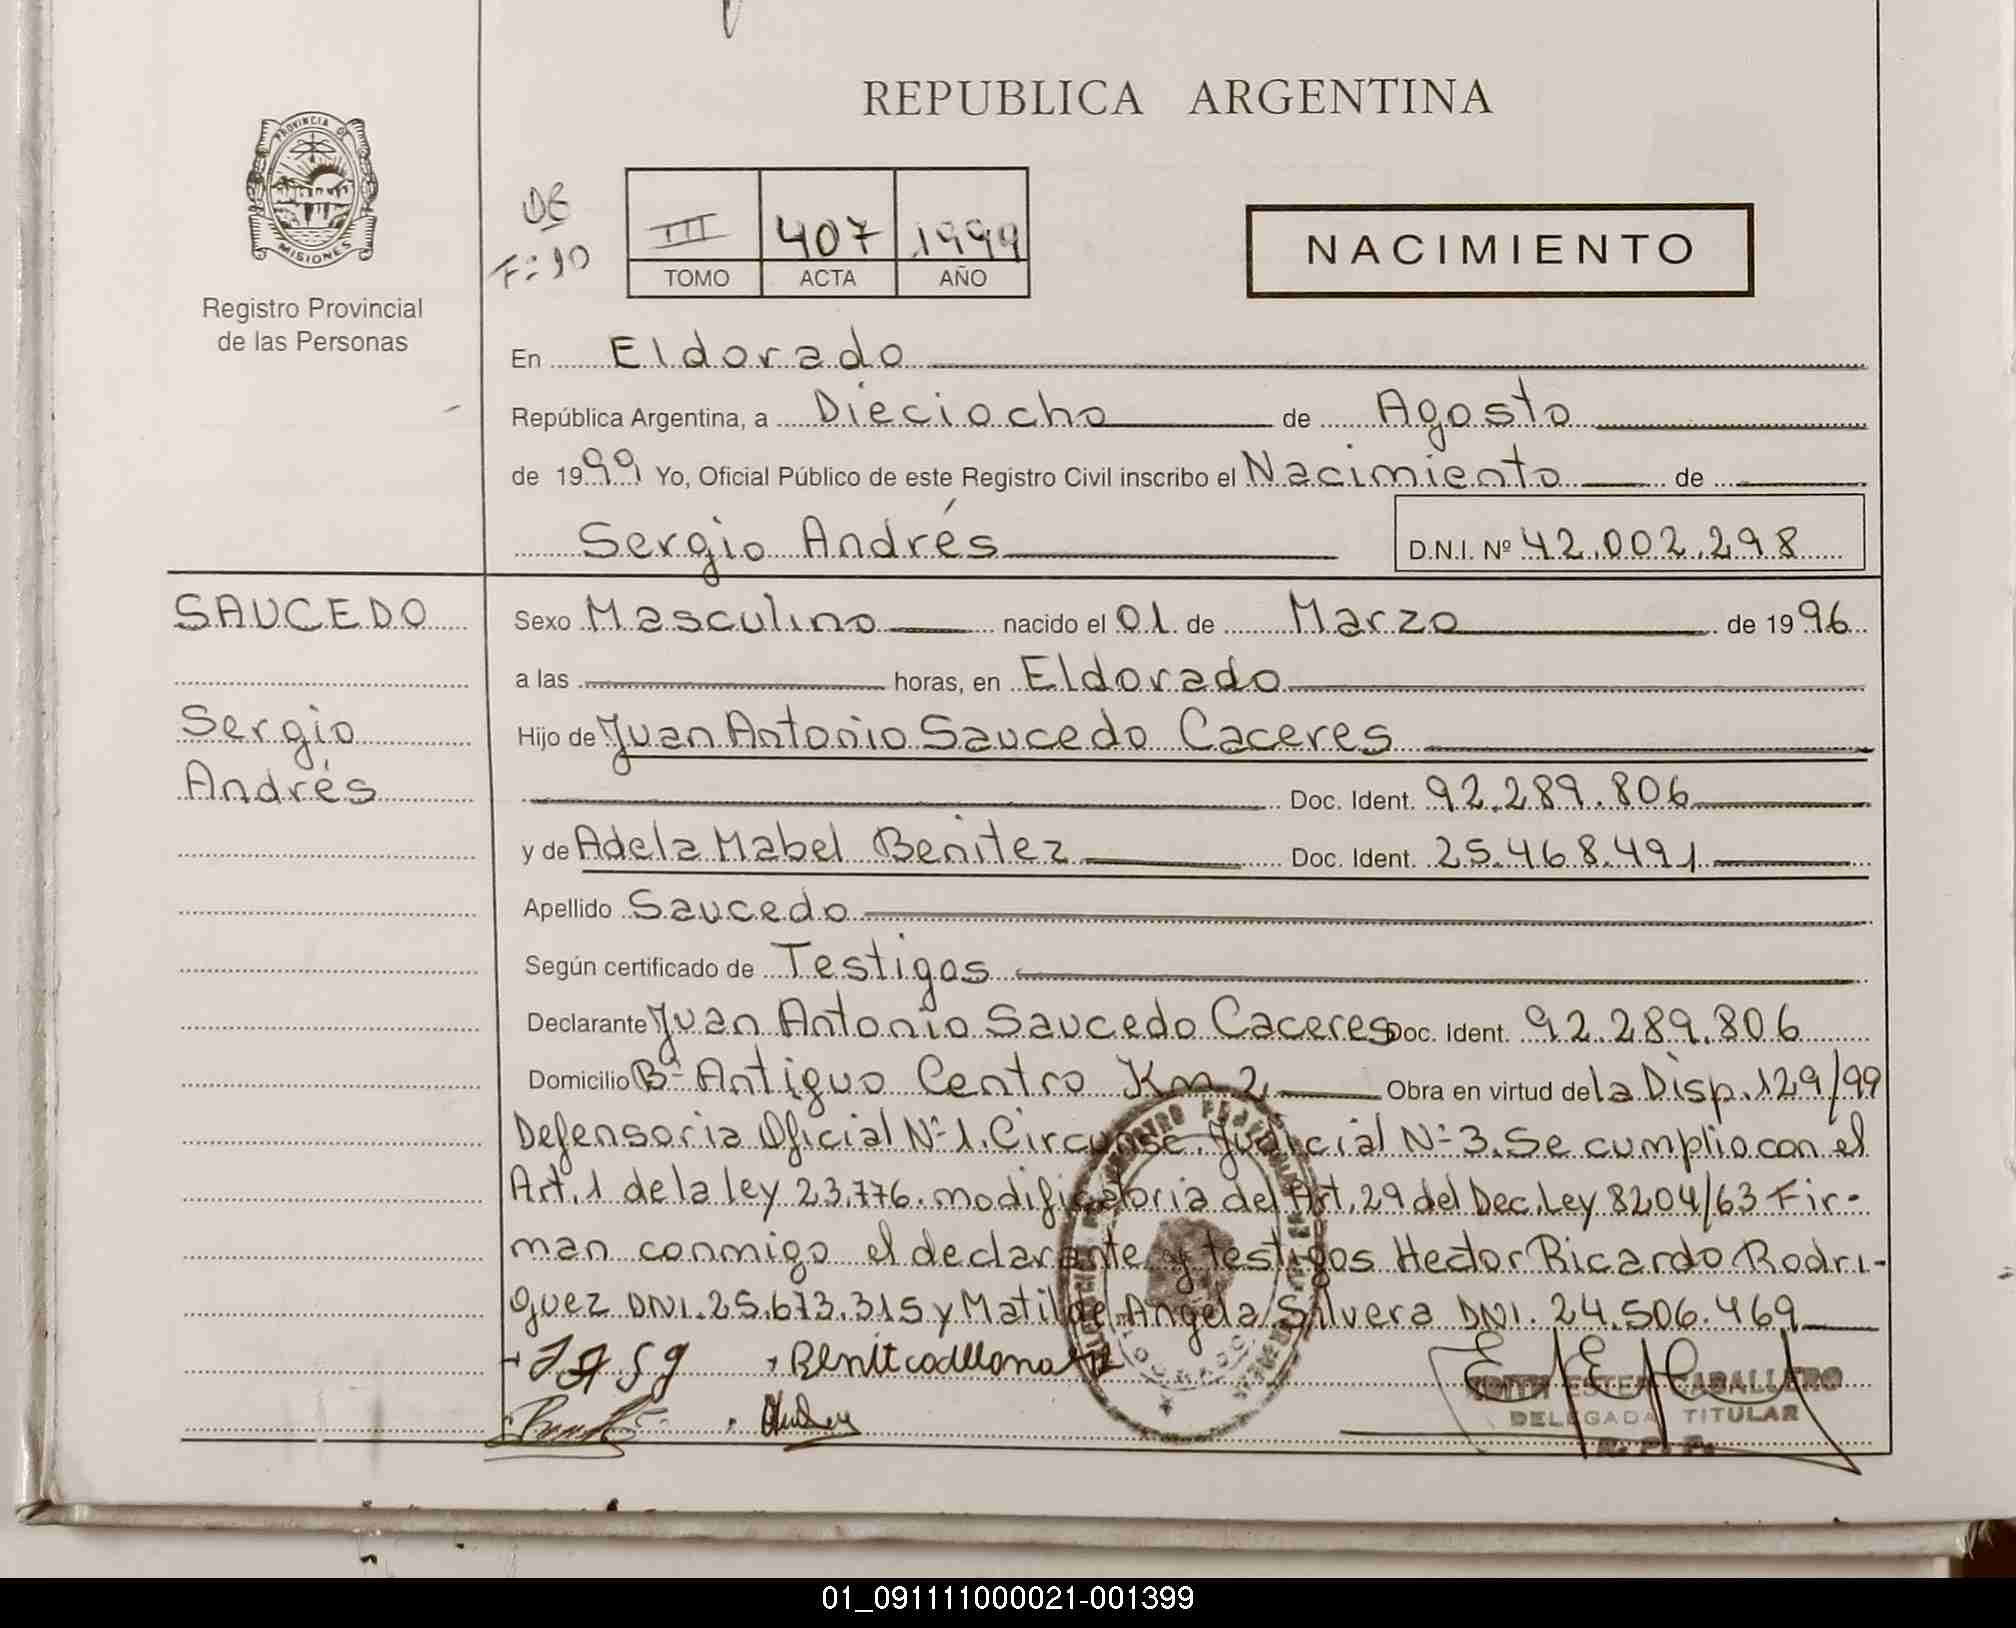 REPUBLICA ARGENTINA
PROVINCIA DE
MISIONES
Registro Provincial
de las Personas
DE
F: 90
III 407 1999
TOMO ACTA AÑO
NACIMIENTO
En Eldorado
República Argentina, a Dieciocho de Agosto
de 1999 Yo, Oficial Público de este Registro Civil inscribo el Nacimiento de
Sergio Andrés D.N.I. Nº 42.002.298
SAUCEDO
Sergio
Andrés
Sexo Masculino nacido el 01 de Marzo de 1996
a las horas, en Eldorado
Hijo de Juan Antonio Saucedo Caceres
Doc. Ident. 92.289.806
y de Adela Mabel Benitez Doc. Ident. 25.468.491
Apellido Saucedo
Según certificado de Testigos
Declarante Juan Antonio Saucedo Caceres Doc. Ident. 92.289.806
Domicilio Bº Antiguo Centro Km 2 Obra en virtud de la Disp. 129/99
Defensoria Oficial Nº 1. Circunsc. Judicial Nº 3. Se cumplio con el
Art. 1 de la ley 23.776. modificatoria del Art. 29 del Dec. Ley 8204/63 Fir-
man conmigo el declarante y testigos Hector Ricardo Rodri-
guez DNI. 25.673.315 y Matilde Angela Silvera DNI. 24.506.469
ELDORADO
EDITH ESTER CABALLERO
DELEGADA TITULAR
R. P. P.
01_091111000021-001399